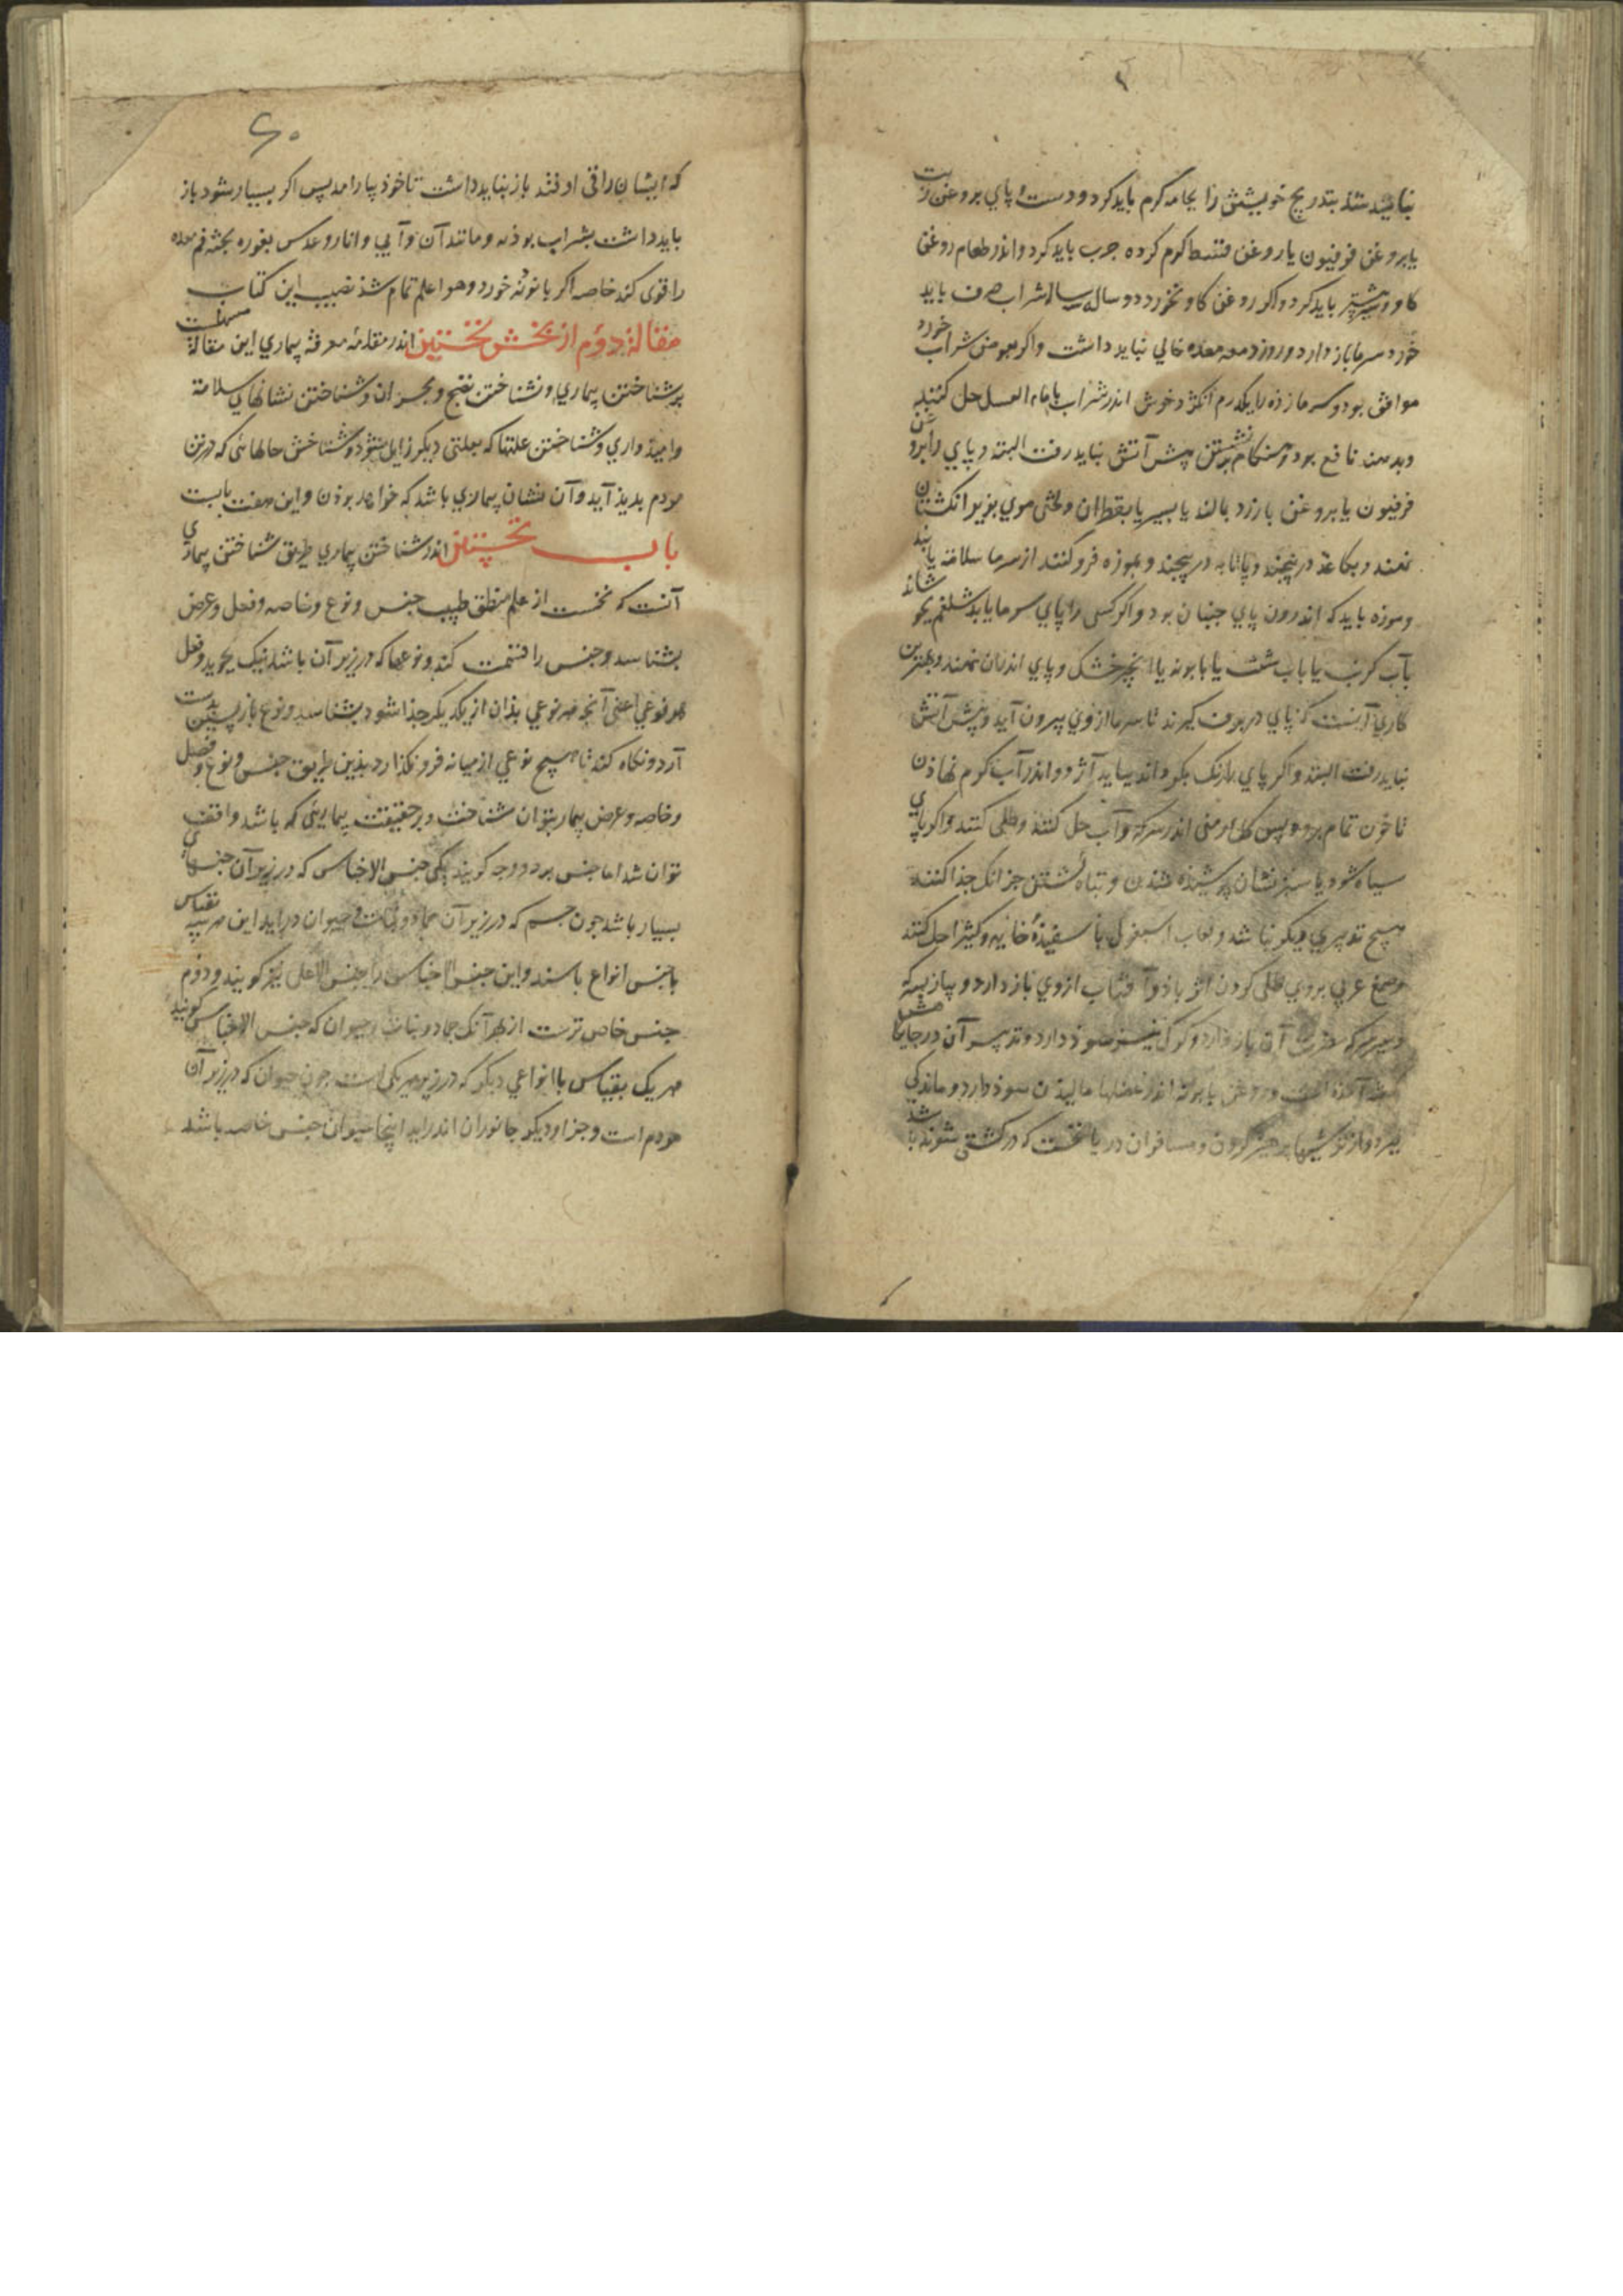 نباید شد بتدریج خویشتن را بجامه گرم باید کرد و دست و پای بروغن زیت
یا بروغن فرفیون یا روغن قسط گرم کرده چرب باید کرد و اندر طعام روغن
گاو و سیر بیشتر باید کرد و اگر روغن گاو بخورد و دو سال شراب صرف باید
خورد سرما باز دارد و روز دمه معده خالی نباید داشت و اگر بعوض شراب خورد
موافق بود و سرما زده را یکدرم انگژد خوش اندر شراب یا ماء العسل حل کنند
و بدهند نافع بود و هنگام نشستن پیش آتش نباید رفت البته و پای را بروغن
فرفیون یا بروغن بارزد بالند یا بسیر یا بقطران و لختی موی بزیر انگشتان
نهند و بکاغذ در پیچند و پاتابه در پیچند و بموزه فرو کنند از سرما سلامة یابند
و موزه باید که اندرون پای جنبان بود و اگر کسی را پای سرما یابد شلغم بجوشاند
بآب کرنب یا باب شبت یا بابونه یا انجیر خشک و پای اندران نهند و بهترین
کاری آنست که پای در برف گیرند تا سرما ازوی بیرون آید و پیش آتش
نباید رفت البته و اگر پای رنک بگرداند بباید آژد و اندر آب گرم نهاذن
تا خون تمام برود پس گل ارمنی اندر سرکه و آب حل کنند و طلی کنند و اگر پای
سیاه شود یا سبز نشان پوشیده شذن و تباه گشتن جز آنک جذا کنند
هیچ تدبیری دیگر نباشد و لعاب اسبغول با سفیذۀ خایه و کثیرا حل کنند
و صمغ عربی بروی طلی کردن اثر باذ و آفتاب ازوی باز دارد و پیاز بسرکه
و سیر سرکه مضرت آب باز دارد و کوک نیز سوذ دارد و تدبیر آن در جایگاهش
آمذه است و روغن بابونه اندر عضلها مالیذن سوذ دارد و ماندگی
ببرد و از ترشیها پرهیز کردن و مسافران دریا نخست که در کشتی شوند باشد
که ایشان را قی اوفتد باز نباید داشت تا خوذ بیارامد پس اگر بسیار شود باز
باید داشت بشراب بوذنه و مانند آن و آبی و انار و عدس بغوره پخته فم معده
را قوی کند خاصه اگر با توثه خورد و هو اعلم تمام شذ نصیب این کتاب
مقالة دوم از بخش نخستین اندر مقدمه معرفة بیماری این مقالة مشتملست
بر شناختن بیماری و شناختن نضج و بحران و شناختن نشانهای سلامة
و امیذواری و شناختن علتها که بعلتی دیگر زایل شوذ و شناختن حالهائی که در تن
مردم بدیذ آید و آن نشان بیماری باشد که خواهد بوذن و این هفت بابست
باب نخستین اندر شناختن بیماری طریق شناختن بیماری
آنست که نخست از علم منطق طبیب جنس و نوع و خاصه و فصل و عرض
بشناسد و جنس را قسمت کند و نوعها که در زیر آن باشد نیک بجوید و فصل
هر نوعی اعنی آنچه هر نوعی بذان از یکدیگر جذا شود بشناسد و نوع بازپسین بدست
آرد و نگاه کند تا هیچ نوعی از میانه فرو نگذارد بذین طریق جنس و نوع و فصل
و خاصه و عرض بیمار بتوان شناخت و بر حقیقت بیماریی که باشد واقف
توان شد اما جنس بر دو وجه گویند یکی جنس الاجناس که در زیر آن جنسهای
بسیار باشد چون جسم که در زیر آن جماد و نبات و حیوان درآید این هر سه بقیاس
با جنس انواع باشند و این جنس الاجناس را جنس الاعلی نیز گویند و دوم
جنس خاص ترست از بهر آنک جماد و نبات و حیوان که جنس الاجناس گویند
هر یک بقیاس با انواعی دیگر که در زیر هر یکی است چون حیوان که در زیر آن
مردم است و جز او دیگر جانوران اندر آید اینجا حیوان جنس خاصه باشد